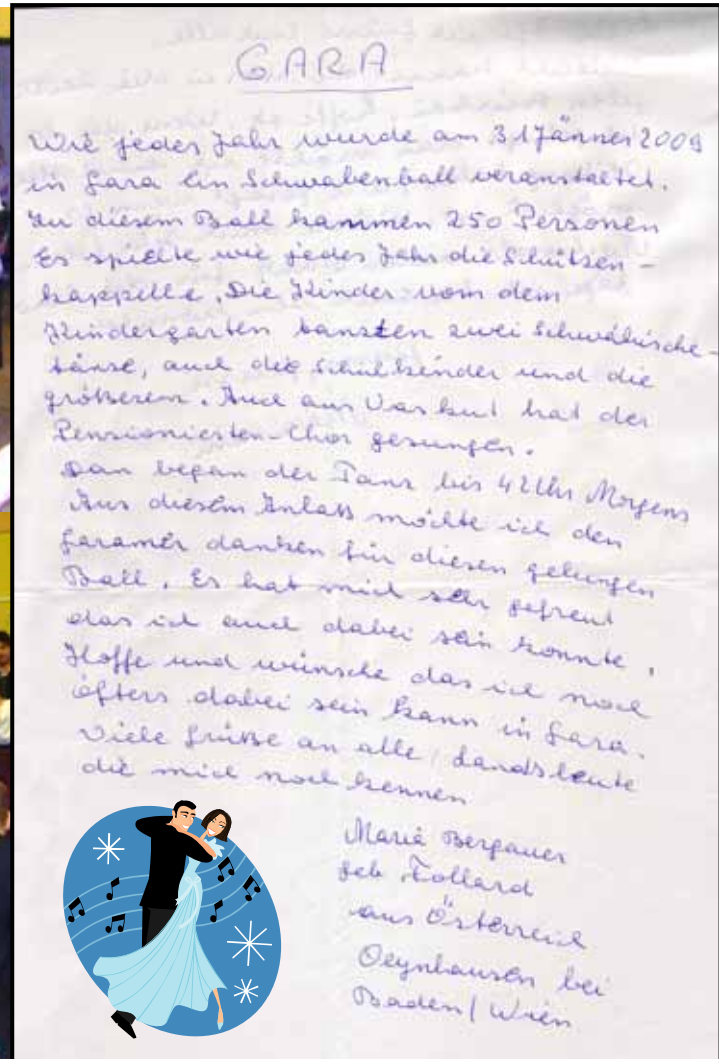 GARA
Wie jedes Jahr wurde am 31 Jänner 2009
in Gara ein Schwabenball veranstaltet.
Zu diesem Ball kammen 250 Personen
Es spielte wie jedes Jahr die Schützen-
kappelle. Die Kinder vom dem
Kindergarten tanzten zwei Schwäbische-
tänze, auch die Schulkinder und die
größeren. Auch aus Vaskut hat der
Pensionisten-Chor gesungen.
Dan began der Tanz bis 4 Uhr Morgens
Aus diesem Anlaß möchte ich den
Garamer danken für diesen gelungen
Ball. Es hat mich sehr gefreut
das ich auch dabei sein konnte.
Hoffe und wünsche das ich noch
öfters dabei sein kann in Gara.
Viele Grüße an alle, Landsleute
die mich noch kennen
Maria Bergauer
geb. Follard
aus Österreich
Oeynhausen bei
Baden/Wien